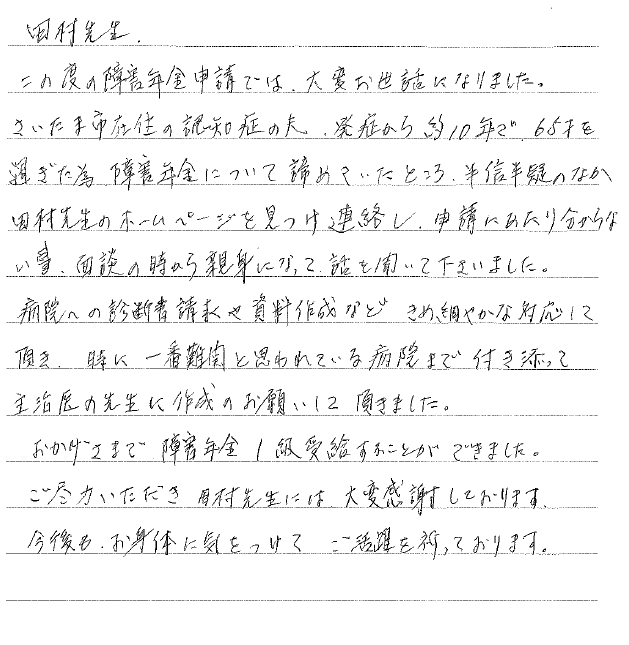 田村先生.
この度の障害年金申請では、大変お世話になりました。
さいたま市在住の認知症の夫、発症から約10年で、65才を
過ぎた為 障害年金について諦めていたところ、半信半疑のなか
田村先生のホームページを見つけ連絡し、申請にあたり分からな
い事、面談の時から親身になって、話を聞いて下さいました。
病院への診断書請求や資料作成など きめ細やかな対応して
頂き、時に一番難関と思われている病院まで付き添って
主治医の先生に作成のお願いして頂きました。
おかげさまで 障害年金1級受給することができました。
ご尽力いただき 田村先生には、大変感謝しております。
今後も、お身体に気をつけて ご活躍を祈っております。